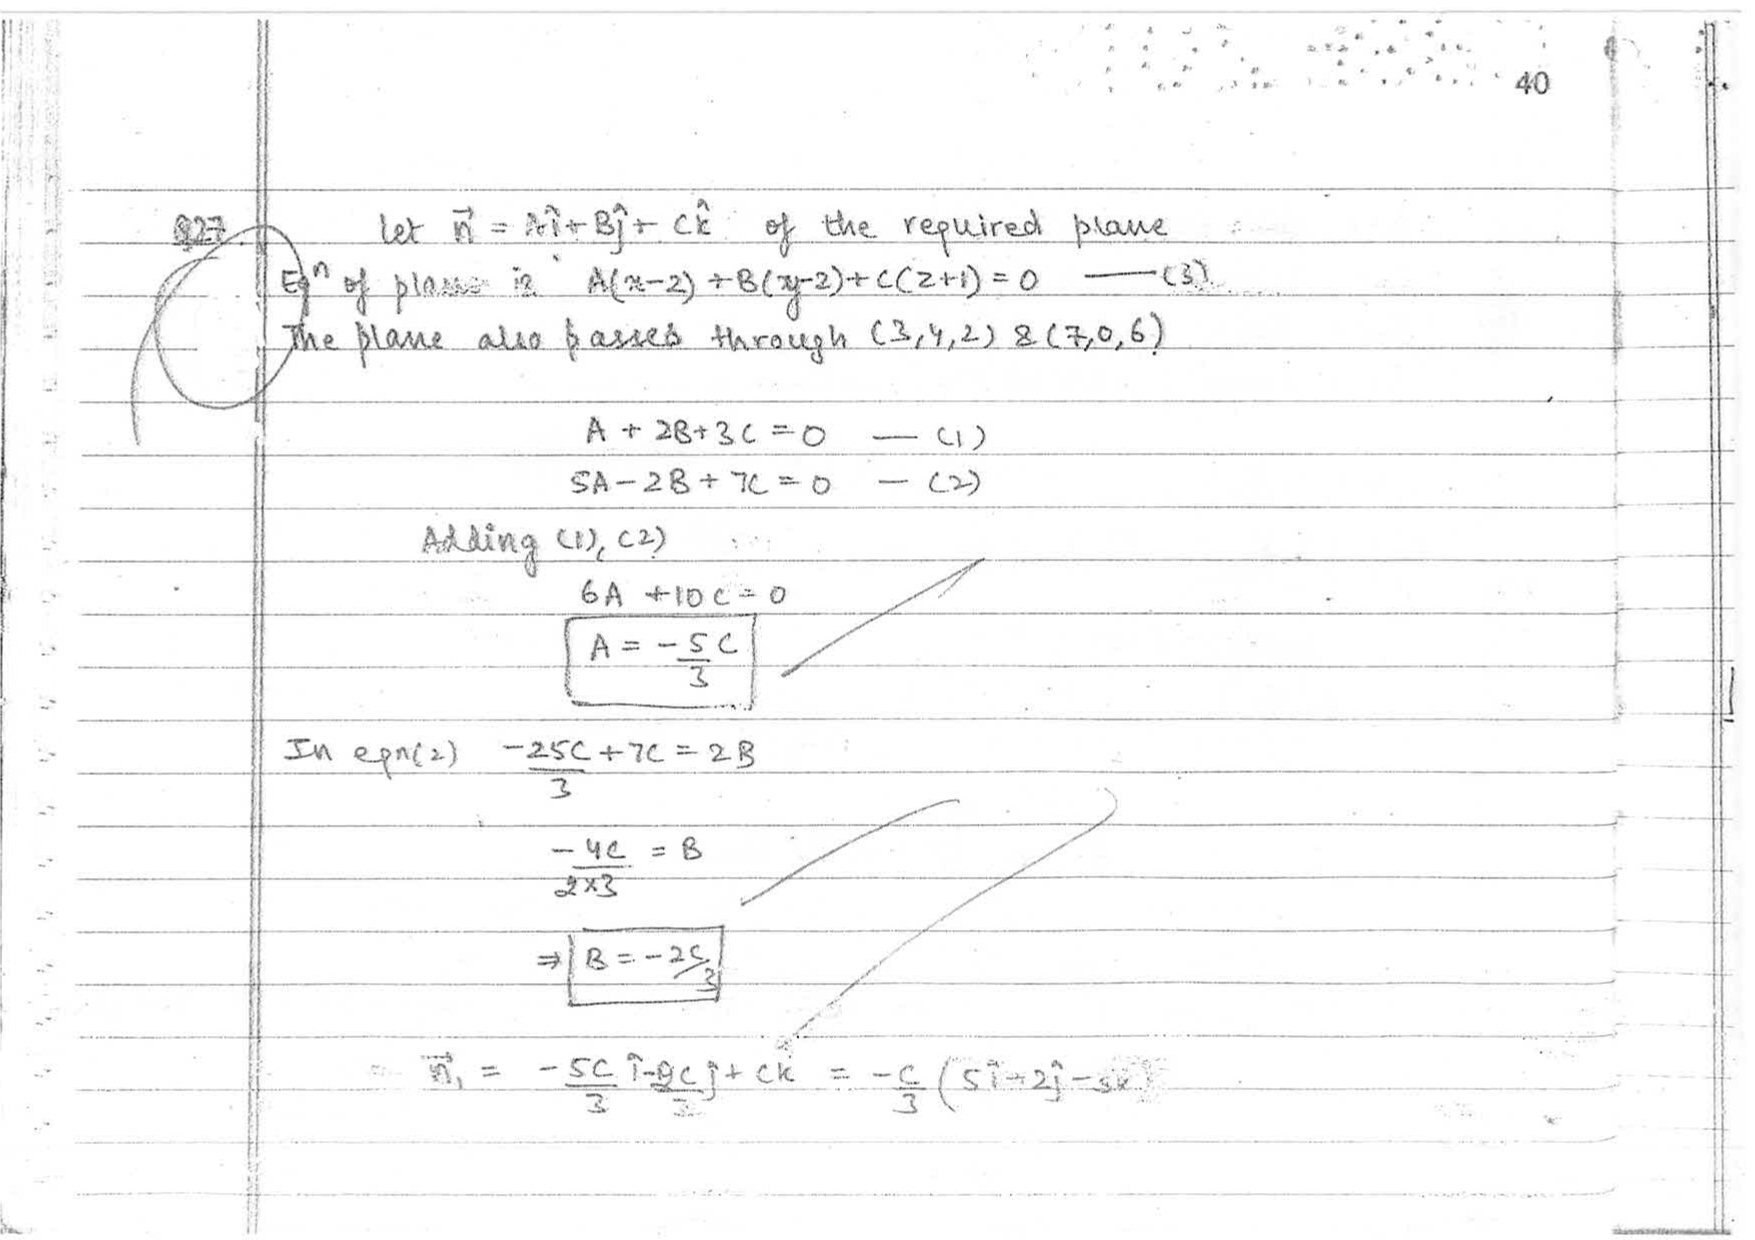 40
Q27. Let n⃗ = Aî + Bĵ + Ck̂ of the required plane
Eqⁿ of plane is A(x-2) + B(y-2) + C(z+1) = 0 —— (3)
The plane also passes through (3,4,2) & (7,0,6)
A + 2B + 3C = 0 — (1)
5A - 2B + 7C = 0 — (2)
Adding (1), (2)
6A + 10C = 0
A = -5C/3
In eqn(2) -25C/3 + 7C = 2B
-4C/(2×3) = B
⇒ B = -2C/3
n⃗₁ = -5C/3 î - 2C/3 ĵ + Ck̂ = -C/3 (5î + 2ĵ - 3k̂)